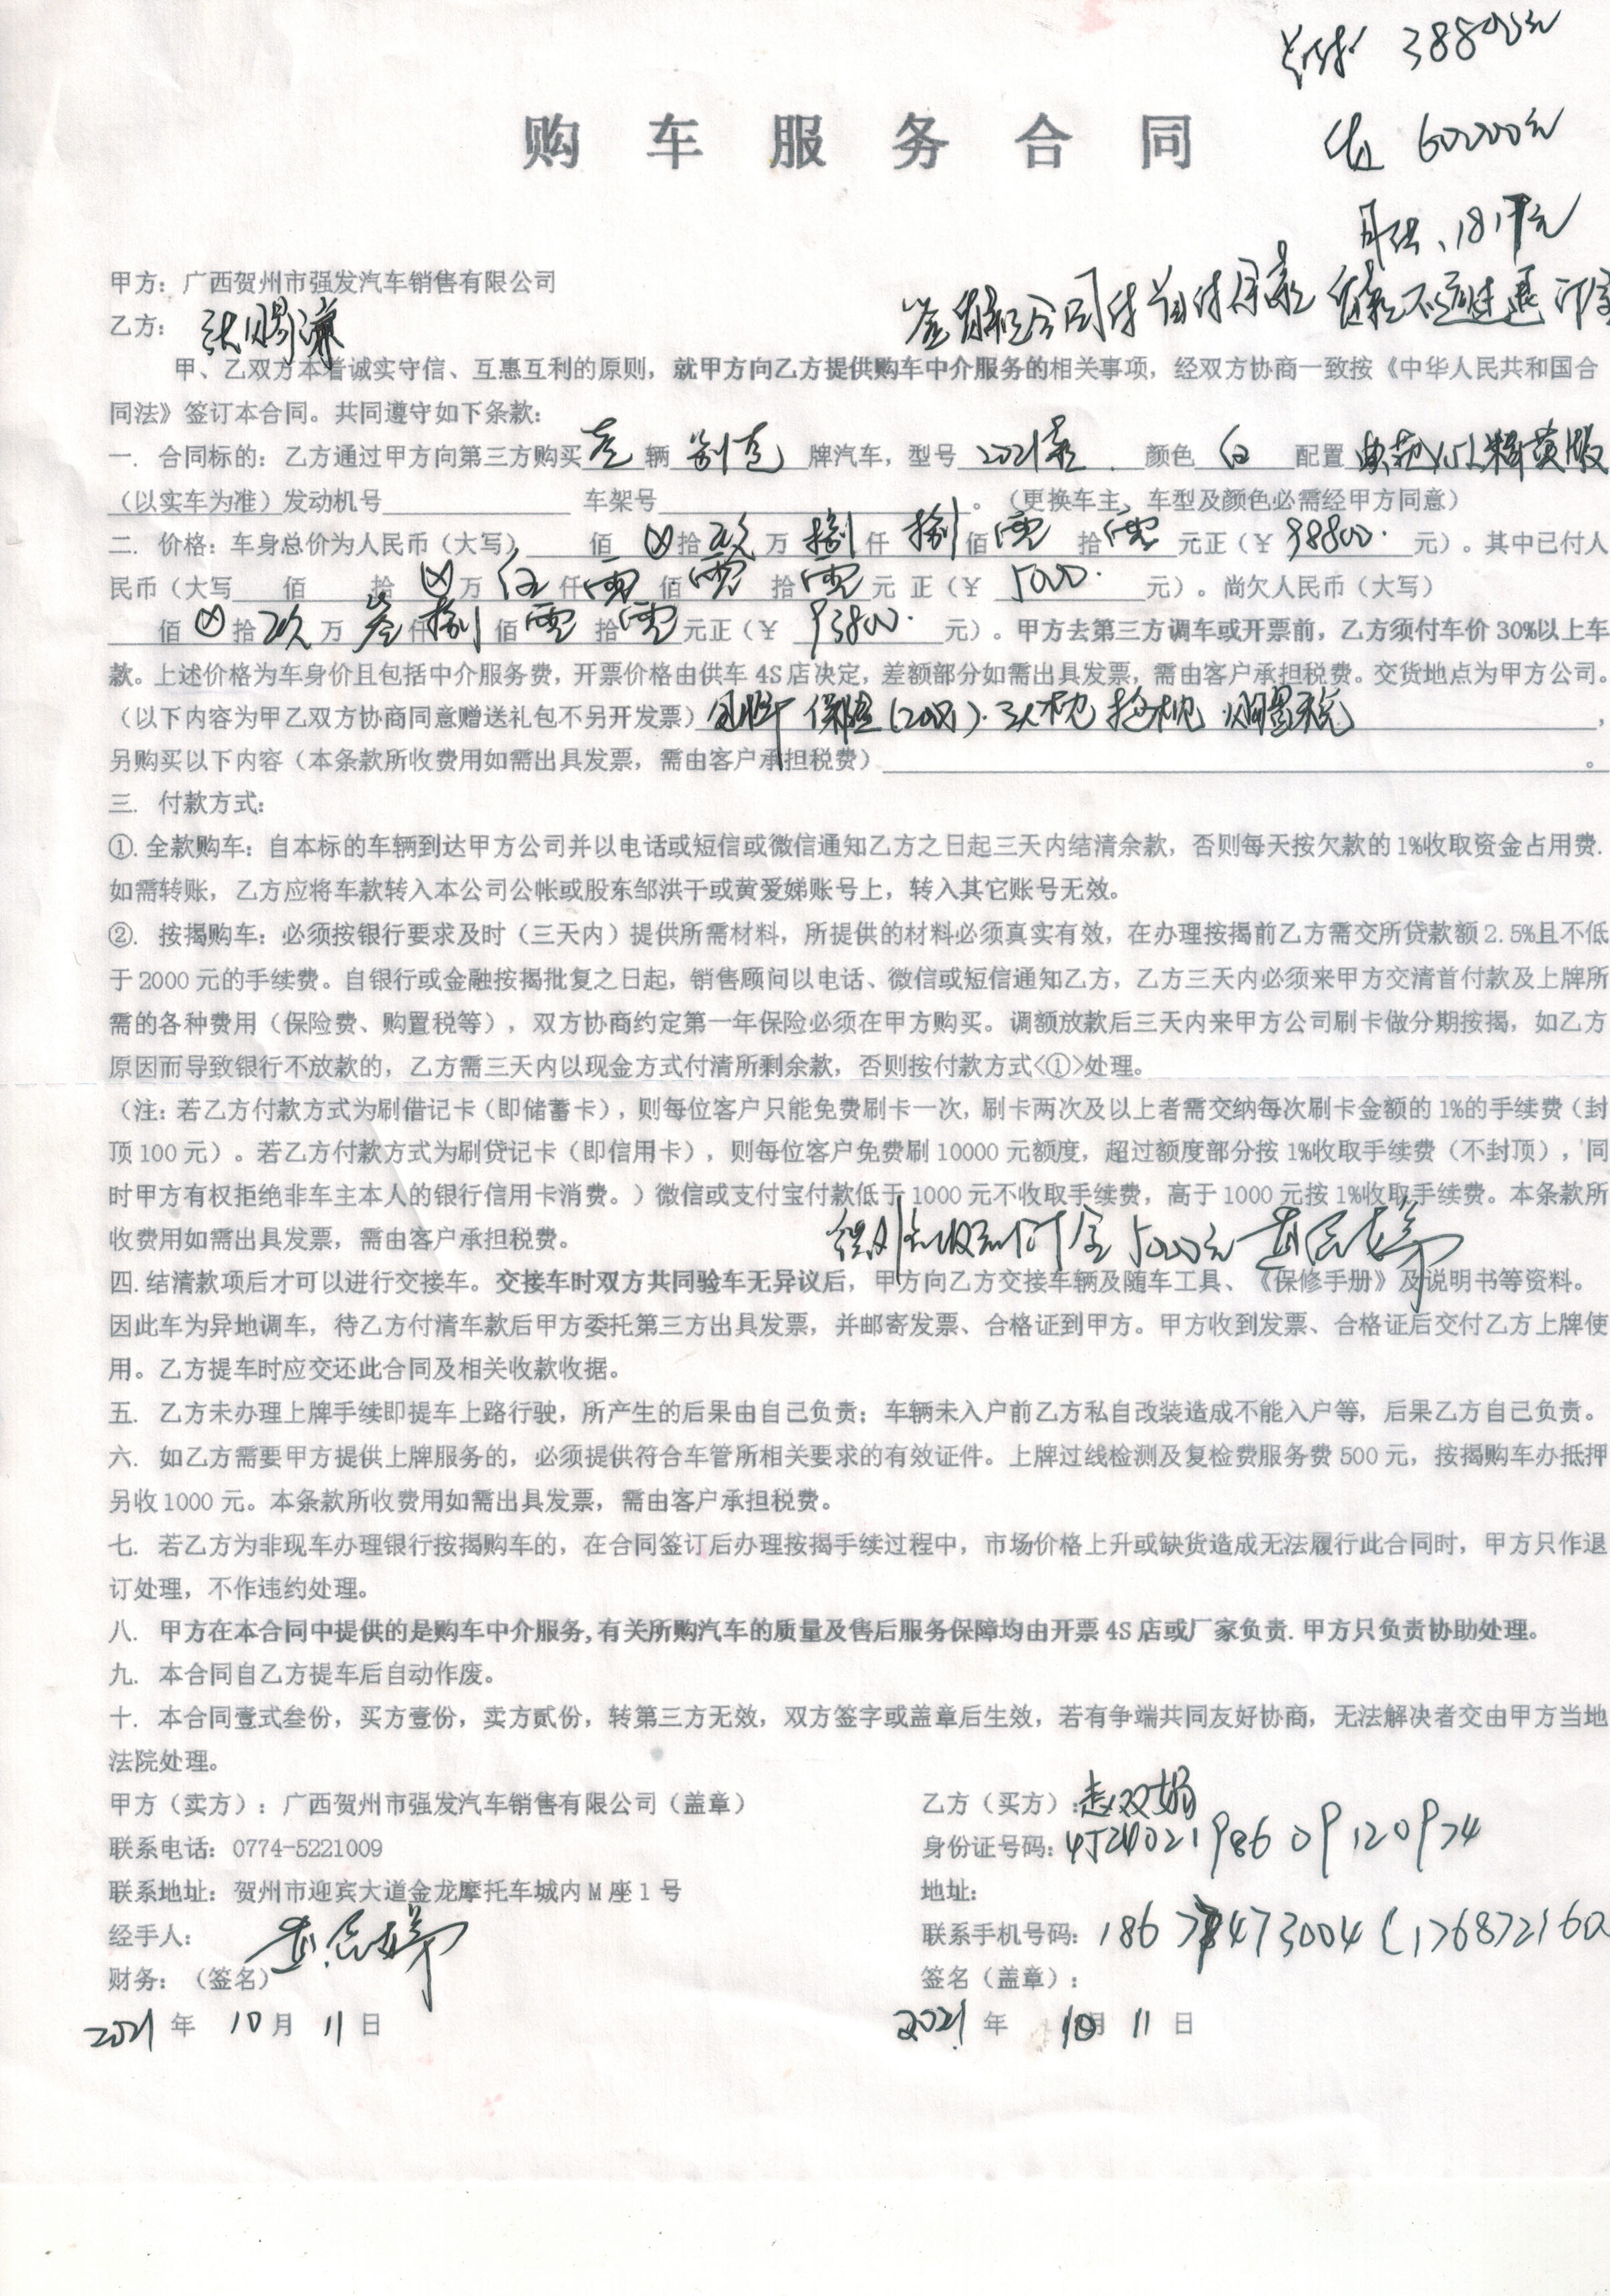 首付 38800元
贷 60000元
购车服务合同
月供、1817元
甲方：广西贺州市强发汽车销售有限公司
乙方：
甲、乙双方本着诚实守信、互惠互利的原则，就甲方向乙方提供购车中介服务的相关事项，经双方协商一致按《中华人民共和国合
同法》签订本合同。共同遵守如下条款：
一. 合同标的：乙方通过甲方向第三方购买 壹 辆 别克 牌汽车，型号 2021款 颜色 白 配置 精英版
（以实车为准）发动机号 车架号 。（更换车主、车型及颜色必需经甲方同意）
二. 价格：车身总价为人民币（大写） 佰 拾 玖 万 捌 仟 捌 佰 零 拾 零 元正（¥ 98800. 元）。其中已付人
民币（大写 佰 拾 万 伍 仟 零 佰 零 拾 零 元 正（¥ 5000. 元）。尚欠人民币（大写）
佰 拾 玖 万 叁 仟 捌 佰 零 拾 零 元正（¥ 93800. 元）。甲方去第三方调车或开票前，乙方须付车价 30%以上车
款。上述价格为车身价且包括中介服务费，开票价格由供车 4S 店决定，差额部分如需出具发票，需由客户承担税费。交货地点为甲方公司。
（以下内容为甲乙双方协商同意赠送礼包不另开发票） 保险 ，
另购买以下内容（本条款所收费用如需出具发票，需由客户承担税费） 。
三. 付款方式：
①. 全款购车：自本标的车辆到达甲方公司并以电话或短信或微信通知乙方之日起三天内结清余款，否则每天按欠款的 1%收取资金占用费.
如需转账，乙方应将车款转入本公司公帐或股东邹洪干或黄爱娣账号上，转入其它账号无效。
②. 按揭购车：必须按银行要求及时（三天内）提供所需材料，所提供的材料必须真实有效，在办理按揭前乙方需交所贷款额 2.5%且不低
于 2000 元的手续费。自银行或金融按揭批复之日起，销售顾问以电话、微信或短信通知乙方，乙方三天内必须来甲方交清首付款及上牌所
需的各种费用（保险费、购置税等），双方协商约定第一年保险必须在甲方购买。调额放款后三天内来甲方公司刷卡做分期按揭，如乙方
原因而导致银行不放款的，乙方需三天内以现金方式付清所剩余款，否则按付款方式<①>处理。
（注：若乙方付款方式为刷借记卡（即储蓄卡），则每位客户只能免费刷卡一次，刷卡两次及以上者需交纳每次刷卡金额的 1%的手续费（封
顶 100 元）。若乙方付款方式为刷贷记卡（即信用卡），则每位客户免费刷 10000 元额度，超过额度部分按 1%收取手续费（不封顶），同
时甲方有权拒绝非车主本人的银行信用卡消费。）微信或支付宝付款低于 1000 元不收取手续费，高于 1000 元按 1%收取手续费。本条款所
收费用如需出具发票，需由客户承担税费。 订金 5000元 黄爱娣
四. 结清款项后才可以进行交接车。交接车时双方共同验车无异议后，甲方向乙方交接车辆及随车工具、《保修手册》及说明书等资料。
因此车为异地调车，待乙方付清车款后甲方委托第三方出具发票，并邮寄发票、合格证到甲方。甲方收到发票、合格证后交付乙方上牌使
用。乙方提车时应交还此合同及相关收款收据。
五. 乙方未办理上牌手续即提车上路行驶，所产生的后果由自己负责；车辆未入户前乙方私自改装造成不能入户等，后果乙方自己负责。
六. 如乙方需要甲方提供上牌服务的，必须提供符合车管所相关要求的有效证件。上牌过线检测及复检费服务费 500 元，按揭购车办抵押
另收 1000 元。本条款所收费用如需出具发票，需由客户承担税费。
七. 若乙方为非现车办理银行按揭购车的，在合同签订后办理按揭手续过程中，市场价格上升或缺货造成无法履行此合同时，甲方只作退
订处理，不作违约处理。
八. 甲方在本合同中提供的是购车中介服务, 有关所购汽车的质量及售后服务保障均由开票 4S 店或厂家负责. 甲方只负责协助处理。
九. 本合同自乙方提车后自动作废。
十. 本合同壹式叁份，买方壹份，卖方贰份，转第三方无效，双方签字或盖章后生效，若有争端共同友好协商，无法解决者交由甲方当地
法院处理。
甲方（卖方）：广西贺州市强发汽车销售有限公司（盖章） 乙方（买方）：赵双娟
联系电话：0774-5221009 身份证号码：
联系地址：贺州市迎宾大道金龙摩托车城内 M 座 1 号 地址：
经手人： 黄爱娣 联系手机号码：
财务：（签名） 签名（盖章）：
2021 年 10 月 11 日 2021 年 10 月 11 日